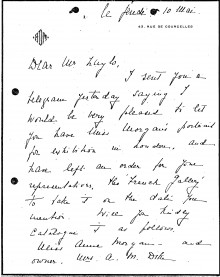 le Jeudi 10 Mai.
43, RUE DE COURCELLES
Dear Mr
I sent you a
telegram yesterday saying I
would be very pleased to let
you have Miss Morgan's portrait
for exhibition in London. and
have left an order for
representatives, the "French Gallery"
to take it on the date you
mention.
catalogue is as follows.
Miss Anne Morgan — and
owner. Mrs. A. M.